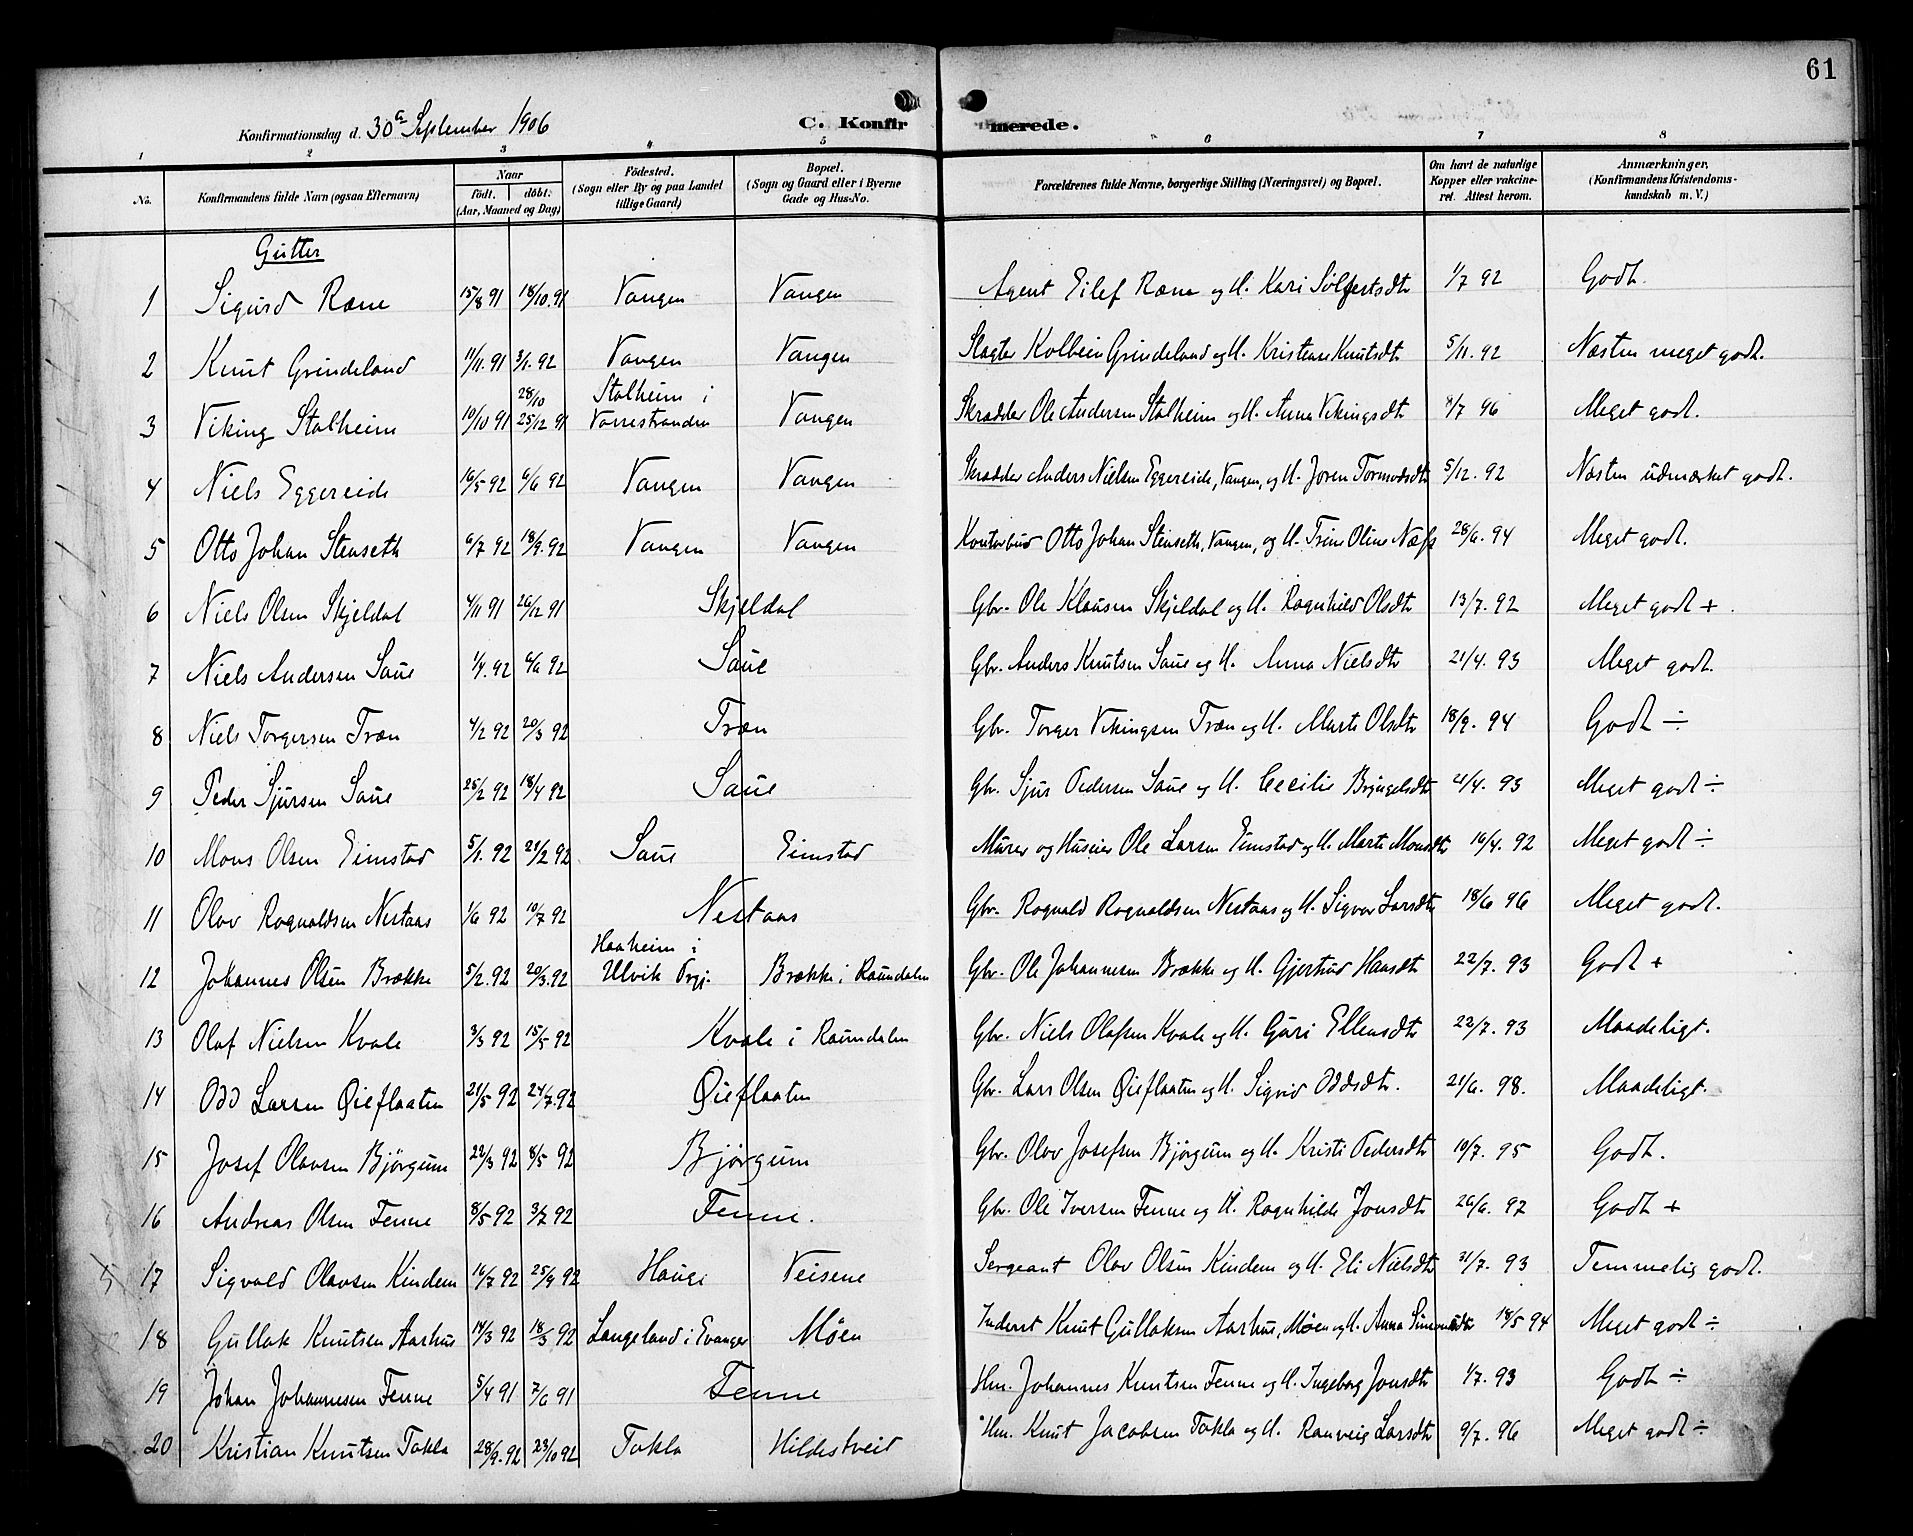 61
Konfirmationsdag d. 30te September 1906 C. Konfirmerede.
1 2 3 4 5 6 7 8
No. Konfirmandens fulde Navn (ogsaa Efternavn) Naar født. døbt. (Aar, Maaned og Dag) Fødested. (Sogn eller By og paa Landet tillige Gaard) Bopæl. (Sogn og Gaard eller i Byerne Gade og Hus-No. Forældrenes fulde Navne, borgerlige Stilling (Næringsvei) og Bopæl. Om havt de naturlige Kopper eller vakcineret. Attest herom. Anmærkninger. (Konfirmandens Kristendomskundskab m. V.)
Gutter
1 Sigurd Ræne 15/8 91 18/10. 91 Vangen Vangen Agent Eilef Ræne og H. Kari Sølfestsdtr 1/7 92 Godt.
2 Knut Grindeland 11/11. 91 3/1. 92 Vangen Vangen Slagter Kolbein Grindeland og H. Kristense Knutsdtr 5/11. 92 Næsten meget godt.
3 Viking Stalheim 10/10 91 28/10 25/12 91 Stalheim i Vossestranden Vangen Skrædder Ole Andersen Stalheim og H. Anna Vikingsdtr /7 96 Meget godt.
4 Niels Eggereide 16/5 92 6/6 92 Vangen Vangen Skrædder Anders Nielsen Eggereide, Vangen, og H. Joren Tormodsdtr 5/12. 92 Næsten udmærket godt.
5 Otto Johan Stenseth 6/7 92 18/9. 92 Vangen Vangen Kontorbud Otto Johan Stenseth, Vangen, og H. Trine Oline Næss 28/6. 94 Meget godt.
6 Niels Olsen Skjeldal 4/11 91 26/12 91 Skjeldal Gbr. Ole Klausen Skjeldal og H. Ragnhild Olsdtr 13/7. 92 Meget godt +
7 Niels Andersen Saue 1/4. 92 6/6 92 Saue Gbr. Anders Knutsen Saue og H. Anna Nielsdtr 21/4. 93 Meget godt.
8 Niels Torgersen Træn 4/2 92 20/3 92 Træn Gbr. Torger Vikingsen Træn og H. Marta Olsdtr 18/9. 94 Godt ÷
9 Peder Sjursen Saue 25/2 92 18/4 92 Saue Gbr. Sjur Pedersen Saue og H. Cecilie Brynjelsdtr 21/4. 93 Meget godt ÷
10 Mons Olsen Eimstad 5/1. 92 21/2 92 Saue Eimstad Murer og Huseier Ole Larsen Eimstad og H. Marta Monsdtr 16/4. 92 Meget godt ÷
11 Olav Rognaldsen Nestaas 1/6 92 10/7 92 Nestaas Gbr. Rognald Rognaldsen Nestaas og H. Sigvor Larsdtr 18/6 96 Meget godt.
12 Johannes Olsen Brække 5/2. 92 20/3. 92 Haaheim i Ulvik Prgj. Brække i Raundalen Gbr. Ole Johannesen Brække og H. Gjertrud Hansdtr 22/7. 93 Godt +
13 Olaf Nielsen Kvale 3/3 92 15/5 92 Kvale i Raundalen Gbr. Niels Olafsen Kvale og H. Guri Ellensdtr 22/7. 93 Maadeligt.
14 Odd Larsen Øieflaaten 21/5 92 24/7. 92 Øieflaaten Gbr. Lars Olsen Øieflaaten og H. Sigrid Oddsdtr. 21/6. 98. Maadeligt.
15 Josef Olavsen Bjørgum 22/3 92 8/5 92 Bjørgum Gbr. Olav Josefsen Bjørgum og H. Kristi Pedersdtr 10/7. 95 Godt.
16 Andreas Olsen Fenne 8/5 92 3/7 92 Fenne. Gbr. Ole Iversen Fenne og H. Ragnhilde Jonsdtr 26/6. 92 Godt +
17 Sigvald Olavsen Kindem 16/7 92 25/9 92 Hauge Veisene Sergeant Olav Olsen Kindem og H. Eli Nielsdtr 31/7. 93 Temmelig godt.
18 Gullak Knutsen Aarhus 14/3 92 18/3 92 Langeland i Evanger Møen Inderst Knut Gullaksen Aarhus, Møen og H. Anna Simonsdtr 18/5 94 Meget godt ÷
19 Johan Johannesen Fenne 5/4 91 7/6 91 Fenne Hm. Johannes Knutsen Fenne og H. Ingeborg Jonsdtr 1/7. 93 Godt ÷
20 Kristian Knutsen Takla 28/9. 92 23/10 92 Takla Hildestveit Hm. Knut Jacobsen Takla og H. Ranveig Larsdtr 9/7. 96 Meget godt ÷